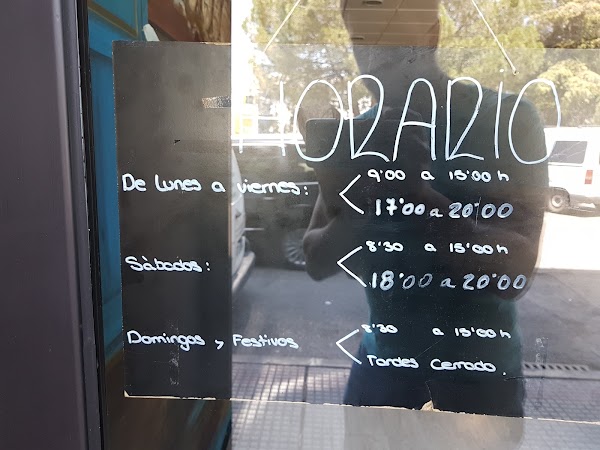 HORARIO
De Lunes a viernes: 9'00 a 15'00 h
17'00 a 20'00
Sàbados: 8'30 a 15'00 h
18'00 a 20'00
Domingos y Festivos 8'30 a 15'00 h
Tardes Cerrado.